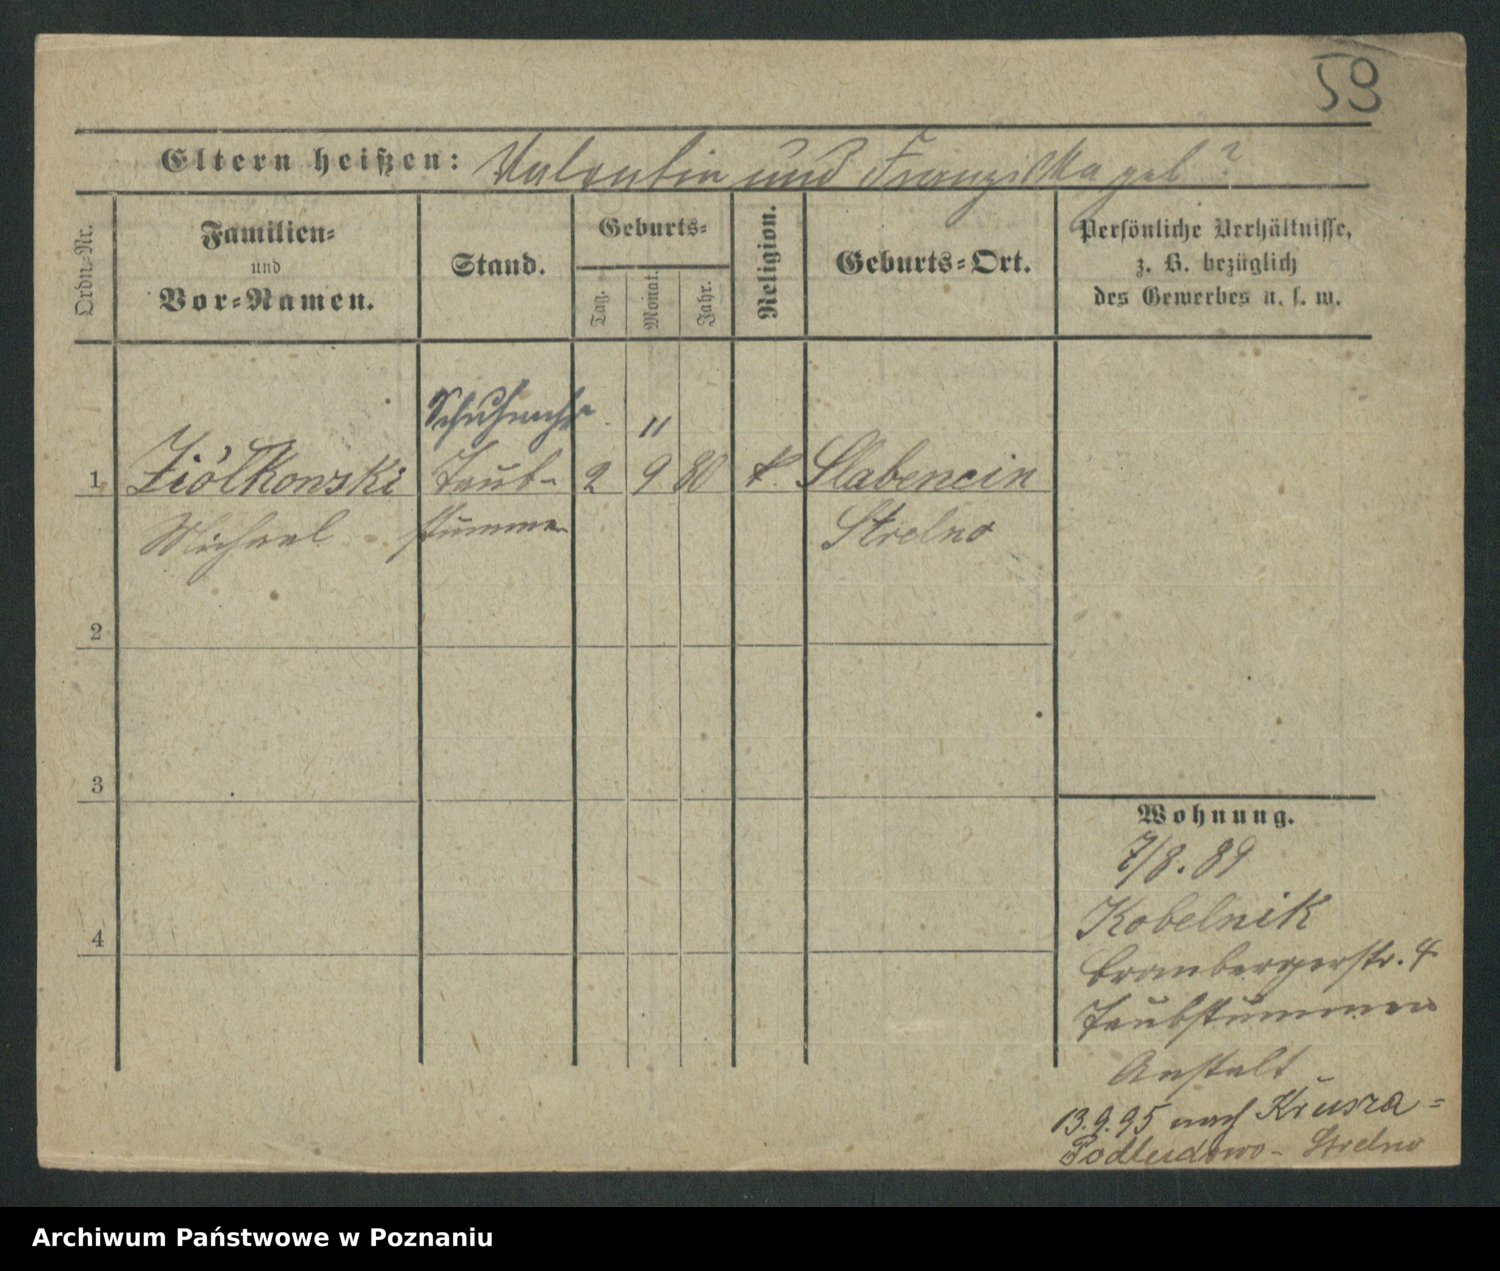 59
Eltern heißen: Valentin und Franziska geb ?
Ordn.-Nr.
Familien-
und
Vor-Namen.
Stand.
Geburts-
Tag.
Monat.
Jahr.
Religion.
Geburts-Ort.
Persönliche Verhältnisse,
z. B. bezüglich
des Gewerbes u. s. w.
Schuhmchr
11
1 Ziółkowski Taub- 2 9 80 k. Slabencin
Michael stumme Strelno
2
3
4
Wohnung.
7/8. 89
Kobelnik
Brombergerstr. 4
Taubstummen
Anstalt
13.9.95 nach Krusza-
Podludowo - Strelno
Archiwum Państwowe w Poznaniu